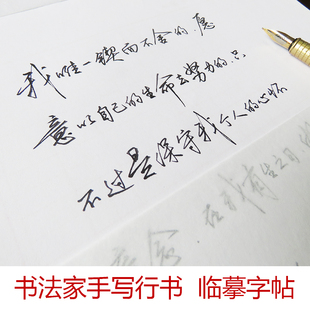 我唯一锲而不舍的,愿
意以自己的生命去努力的,只
不过是保守我个人的心怀
书法家手写行书 临摹字帖